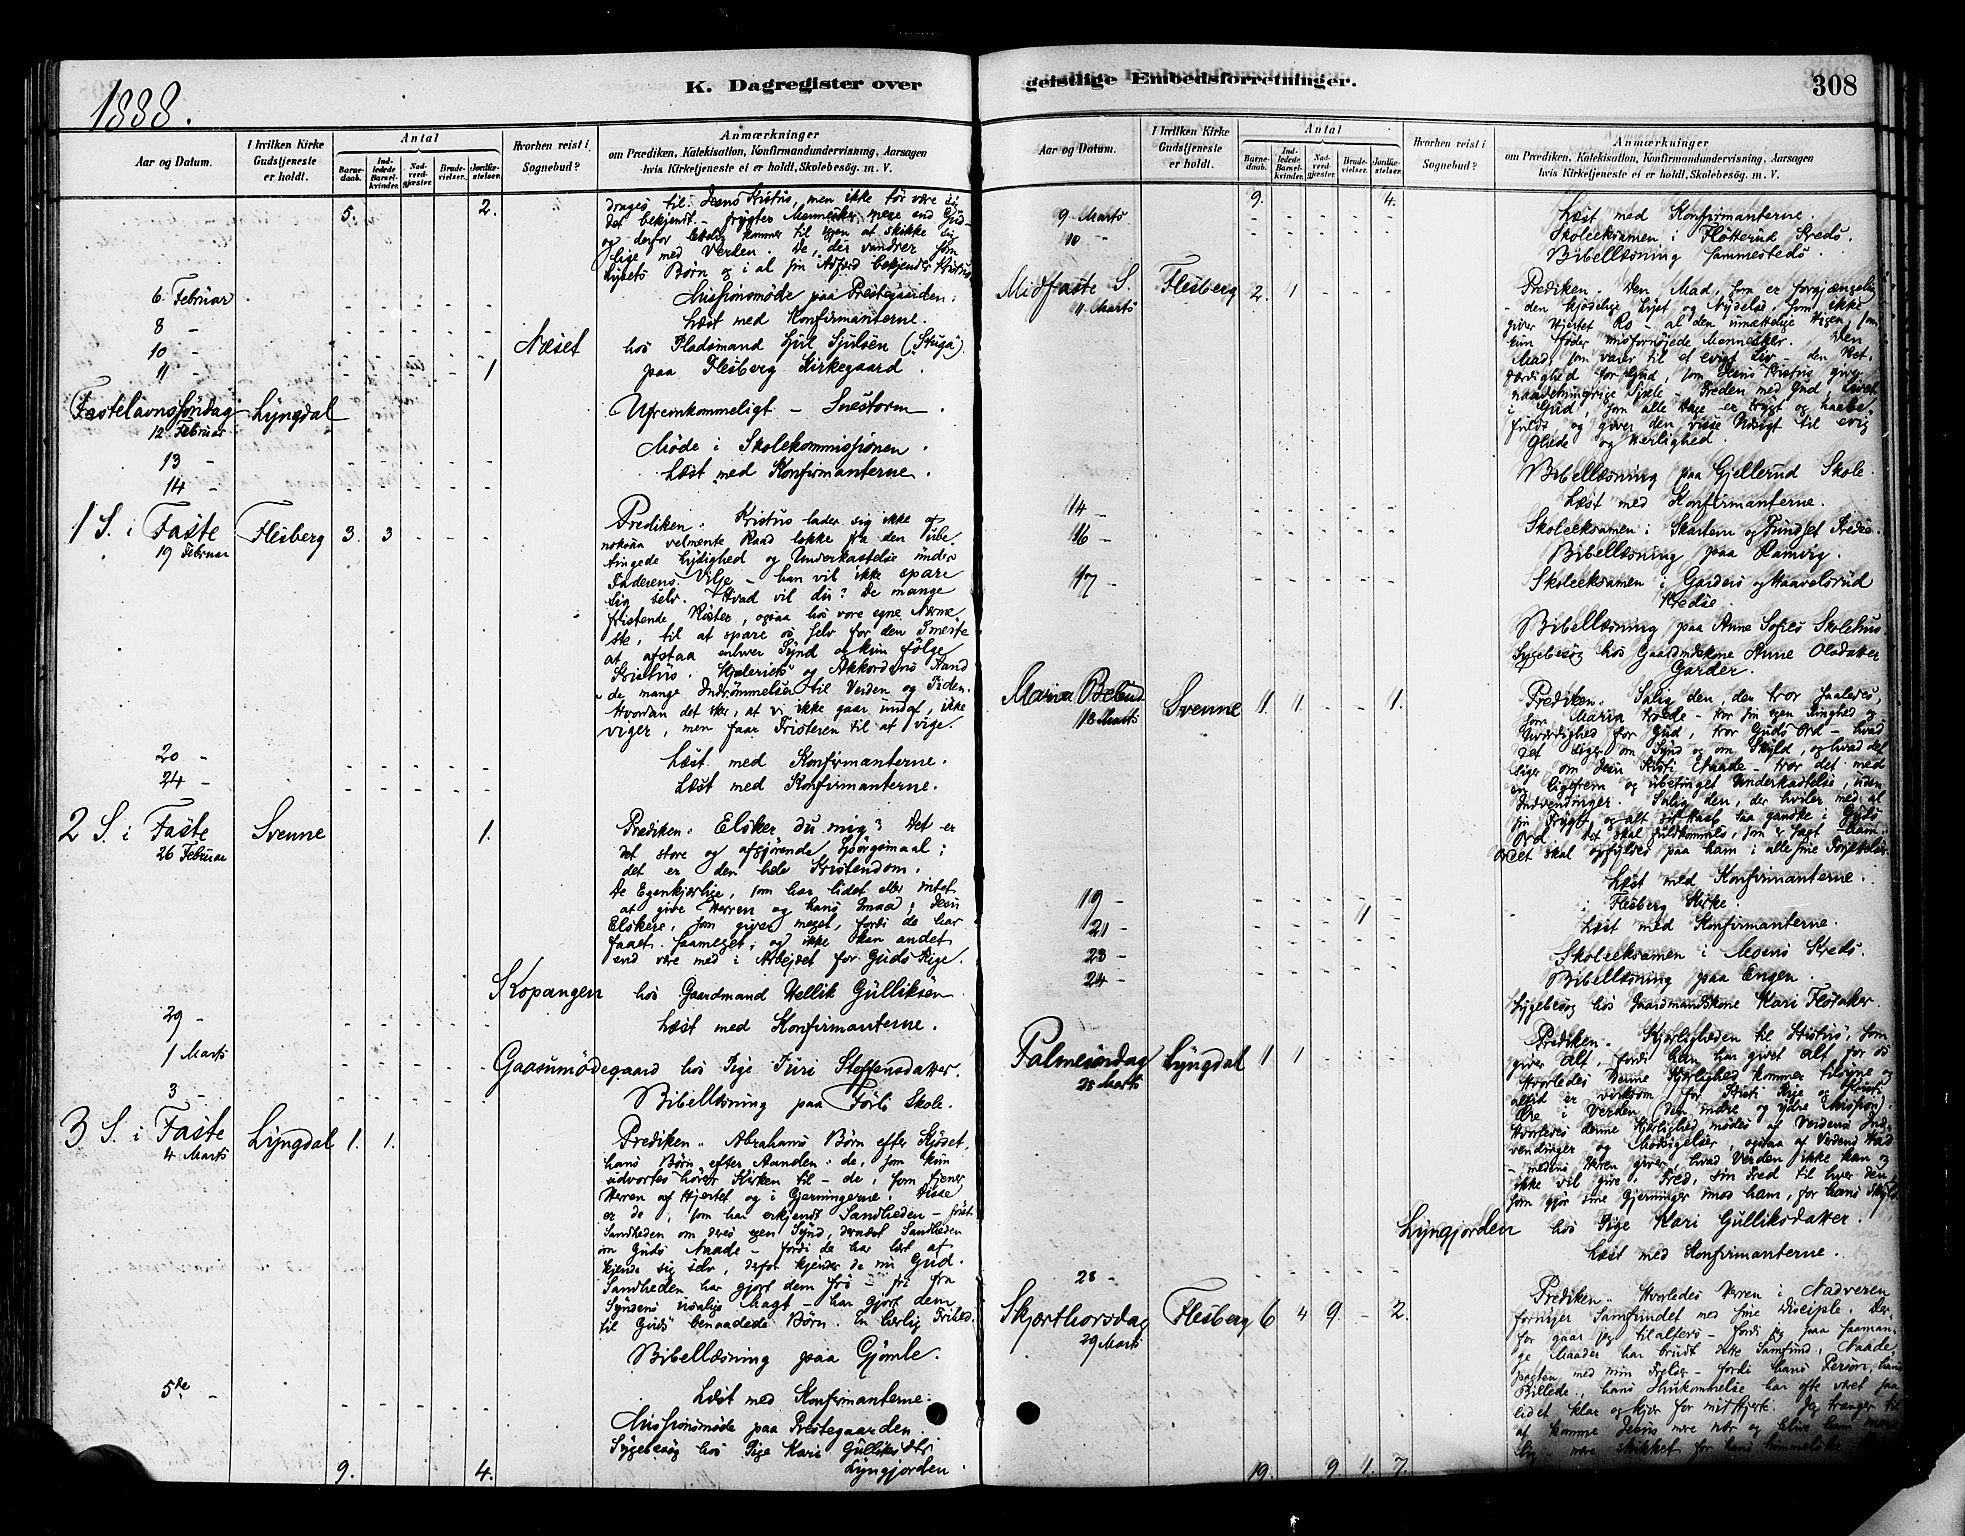 1888.
K. Dagregister over
Aar og Datum.
I hvilken Kirke Gudstjeneste er holdt.
Antal
Barnedaab.
Indledede Barselkvinder.
Nadverdgjester.
Brudevielser.
Jordfæstelser.
Hvorhen reist i Sognebud?
Anmærkninger
om Prædiken, Katekisation, Konfirmandundervisning, Aarsagen
hvis Kirketjeneste ei er holdt, Skolebesøg. m. V.
5. 2.
drages til Jesus Kristus, men ikke tør være sig
det bekjendt – frygter Mennesker mere end Gud
og derfor kommer til igjen at skikke sig
lige med Verden. De, der vandrer som
Lysets Børn og i al sin Adfærd bekjender Kristus
6 Februar Missionsmøde paa Prestegaarden.
8 – Læst med Konfirmanterne.
10 – Næset hos Pladsmand Sjulsen (Stuga)
11 – 1 paa Flesberg Kirkegaard.
Fastelavnssöndag Lyngdal Ufremkommeligt – Snestorm.
12 Februar
13 – Møde i Skolekommissjonen.
14 – Læst med Konfirmanterne.
1 S. i Faste Flesberg 3. 3 Prediken. Kristus lader sig ikke af
19 Februar noksaa velmente Raad lokke fra den ube-
tingede Lydighed og Underkastelse under
Faderens Vilje – han vil ikke spare
sig selv. Hvad vil du? De mange
fristende Röster, ogsaa hos vore egne Nærme-
ste, til at spare os selv for den Smerte
at afstaa enhver Synd og kun følge
Kristus. og Akkordens Aand
– de mange Indrömmelser til Verden og Tiden.
Hvordan det sker, at vi ikke gaar undaf, ikke
viger, men faar Fristeren til at vige.
20 – Læst med Konfirmanterne.
24 – Læst med Konfirmanterne.
2 S. i Faste Svenne 1. Prediken. Elsker du mig? Det er
26 Februar det store og afgjørende Spörgsmaal;
det er den hele Kristendom.
De Egenkjærlige, som har lidet eller intet
at give Herren og hans Smaa; Jesu
Elskere, som giver meget, fordi de har
faaet saameget, og ikke kan andet
end være med i Arbejdet for Guds Rige.
Kopangen hos Gaardmand Hellik Gulliksen
29 – Læst med Konfirmanterne.
1 Marts Gaasumödegaard hos Pige Turi Stoffensdatter.
3 – Bibellæsning paa Förli Skole.
3 S. i Faste Lyngdal 1. 1. Prediken. Abrahams Börn efter Kjödet,
4 Marts hans Börn efter Aanden: de, som kun
udvortes hörer Kirken til – de, som tjener
Herren af Hjertet og i Gjerningerne. Disse
er de, som har erkjendt Sandheden – först
Sandheden om deres egen Synd, dernæst Sandheden
om Guds Naade – fordi de har lært at
kjende sig selv, derfor kjender de nu Gud.
Sandheden har gjort dem fri – fri fra
Syndens usalige Magt – har gjort dem
til Guds benaadede Börn. En herlig Frihed.
Bibellæsning paa Gjömle.
5te – Læst med Konfirmanterne.
Missionsmøde paa Prestegaarden.
Sygebesøg hos Pige Kari Gulliksdtr
Lyngjorden.
9. 4.
geistlige Embedsforretninger.
308
Aar og Datum.
I hvilken Kirke Gudstjeneste er holdt.
Antal
Barnedaab.
Indledede Barselkvinder.
Nadverdgjester.
Brudevielser.
Jordfæstelser.
Hvorhen reist i Sognebud?
Anmærkninger
om Prædiken, Katekisation, Konfirmandundervisning, Aarsagen
hvis Kirketjeneste ei er holdt, Skolebesøg. m. V.
9. 4.
9 Marts Læst med Konfirmanterne.
10 – Skoleeksamen i Fløtterud Kreds.
Bibellæsning sammesteds.
Midfaste S. Flesberg 2. 1 Prediken. Den Mad, som er forgjængelig
11 Marts – den kjødelige Lyst og Nydelse, som ikke
giver Hjertet Ro – al den umættelige Higen, som
kun föder misfornøjede Mennesker. Den
Mad, som varer til et evigt Liv – den Ret-
færdighed for Gud, som Jesus Kristus giver
naadehungrige Sjæle – Freden med Gud, Livet
i Gud, som alle Dage er trygt og haabe-
fuldt og giver den visse Udsigt til evig
Glæde og Herlighed.
Bibellæsning paa Gjellerud Skole.
14 – Læst med Konfirmanterne.
16 – Skoleeksamen i Skartum og Kreds.
Bibellæsning paa Ramvig.
17 – Skoleeksamen i Garders og Haavelsrud
Kredse.
Bibellæsning paa Anne Sofies Skolehus
Sygebesøg hos Gaardmdkone Anne Olsdatter
Garder.
Mariæ Bebud. Svenne 1. 1. 1. Prediken. Salig den, der tror saaledes,
18 Marts som Maria troede – tror sin egen Ringhed og
Uværdighed for Gud, tror Guds Ord – hvad
det siger om Synd og om Skyld, og hvad det
siger om Jesu Kristi Naade – tror det med
en ligefrem og ubetinget Underkastelse, uden
Indvendinger. Salig den, der hviler med al
sin Frygt og alt sit Haab saa ganske i Guds
Ord. Det skal fuldkommes, som er sagt ham.
Ordet skal opfyldes paa ham i alle sine Forjættelser.
Læst med Konfirmanterne.
19 – 1 i Flesberg Kirke.
21 – Læst med Konfirmanterne.
23 – Skoleeksamen i Moens Kreds.
24 – Bibellæsning paa Engen.
Sygebesøg hos Gaardmandskone Kari Flotaker.
Palmesöndag Lyngdal 1 1 Prediken. Kjærligheden til Kristus, som
25 Marts giver alt, fordi han har givet alt for os
Hvorledes denne Kjærlighed kommer tilsyne og
altid er virksom for Kristi Rige og Kristi
Ære i Verden (den indre og ydre Mission).
Hvorledes denne Kjærlighed mödes af Verdens Ind-
vendinger og Modsigelser, ogsaa af Verdens Had
– medens Herren giver, hvad Verden ikke kan og
ikke vil give: Fred, sin Fred til hver den,
som gjør sine Gjerninger imod ham, for hans Skyld.
Lyngjorden hos Pige Kari Gulliksdatter.
28 – Læst med Konfirmanterne.
Skjærthorsdag Flesberg 6 4 9 – 2. Prediken. Hvorledes Herren i Nadveren
29 Marts fornyer Samfundet med sine Disciple. Der-
for gaar jeg tilalters – fordi jeg paa saaman-
ge Maader har brudt dette Samfund, Naade-
pagten med min Frelser – fordi hans Person, hans
Billede, hans Ihukommelse har ofte været saa
lidet klar og kjær for mit Hjerte. Jeg trænger til
at komme Jesus mere nær og blive ham mere
lig – mere skikket for hans himmelske
19. 9 1. 7.